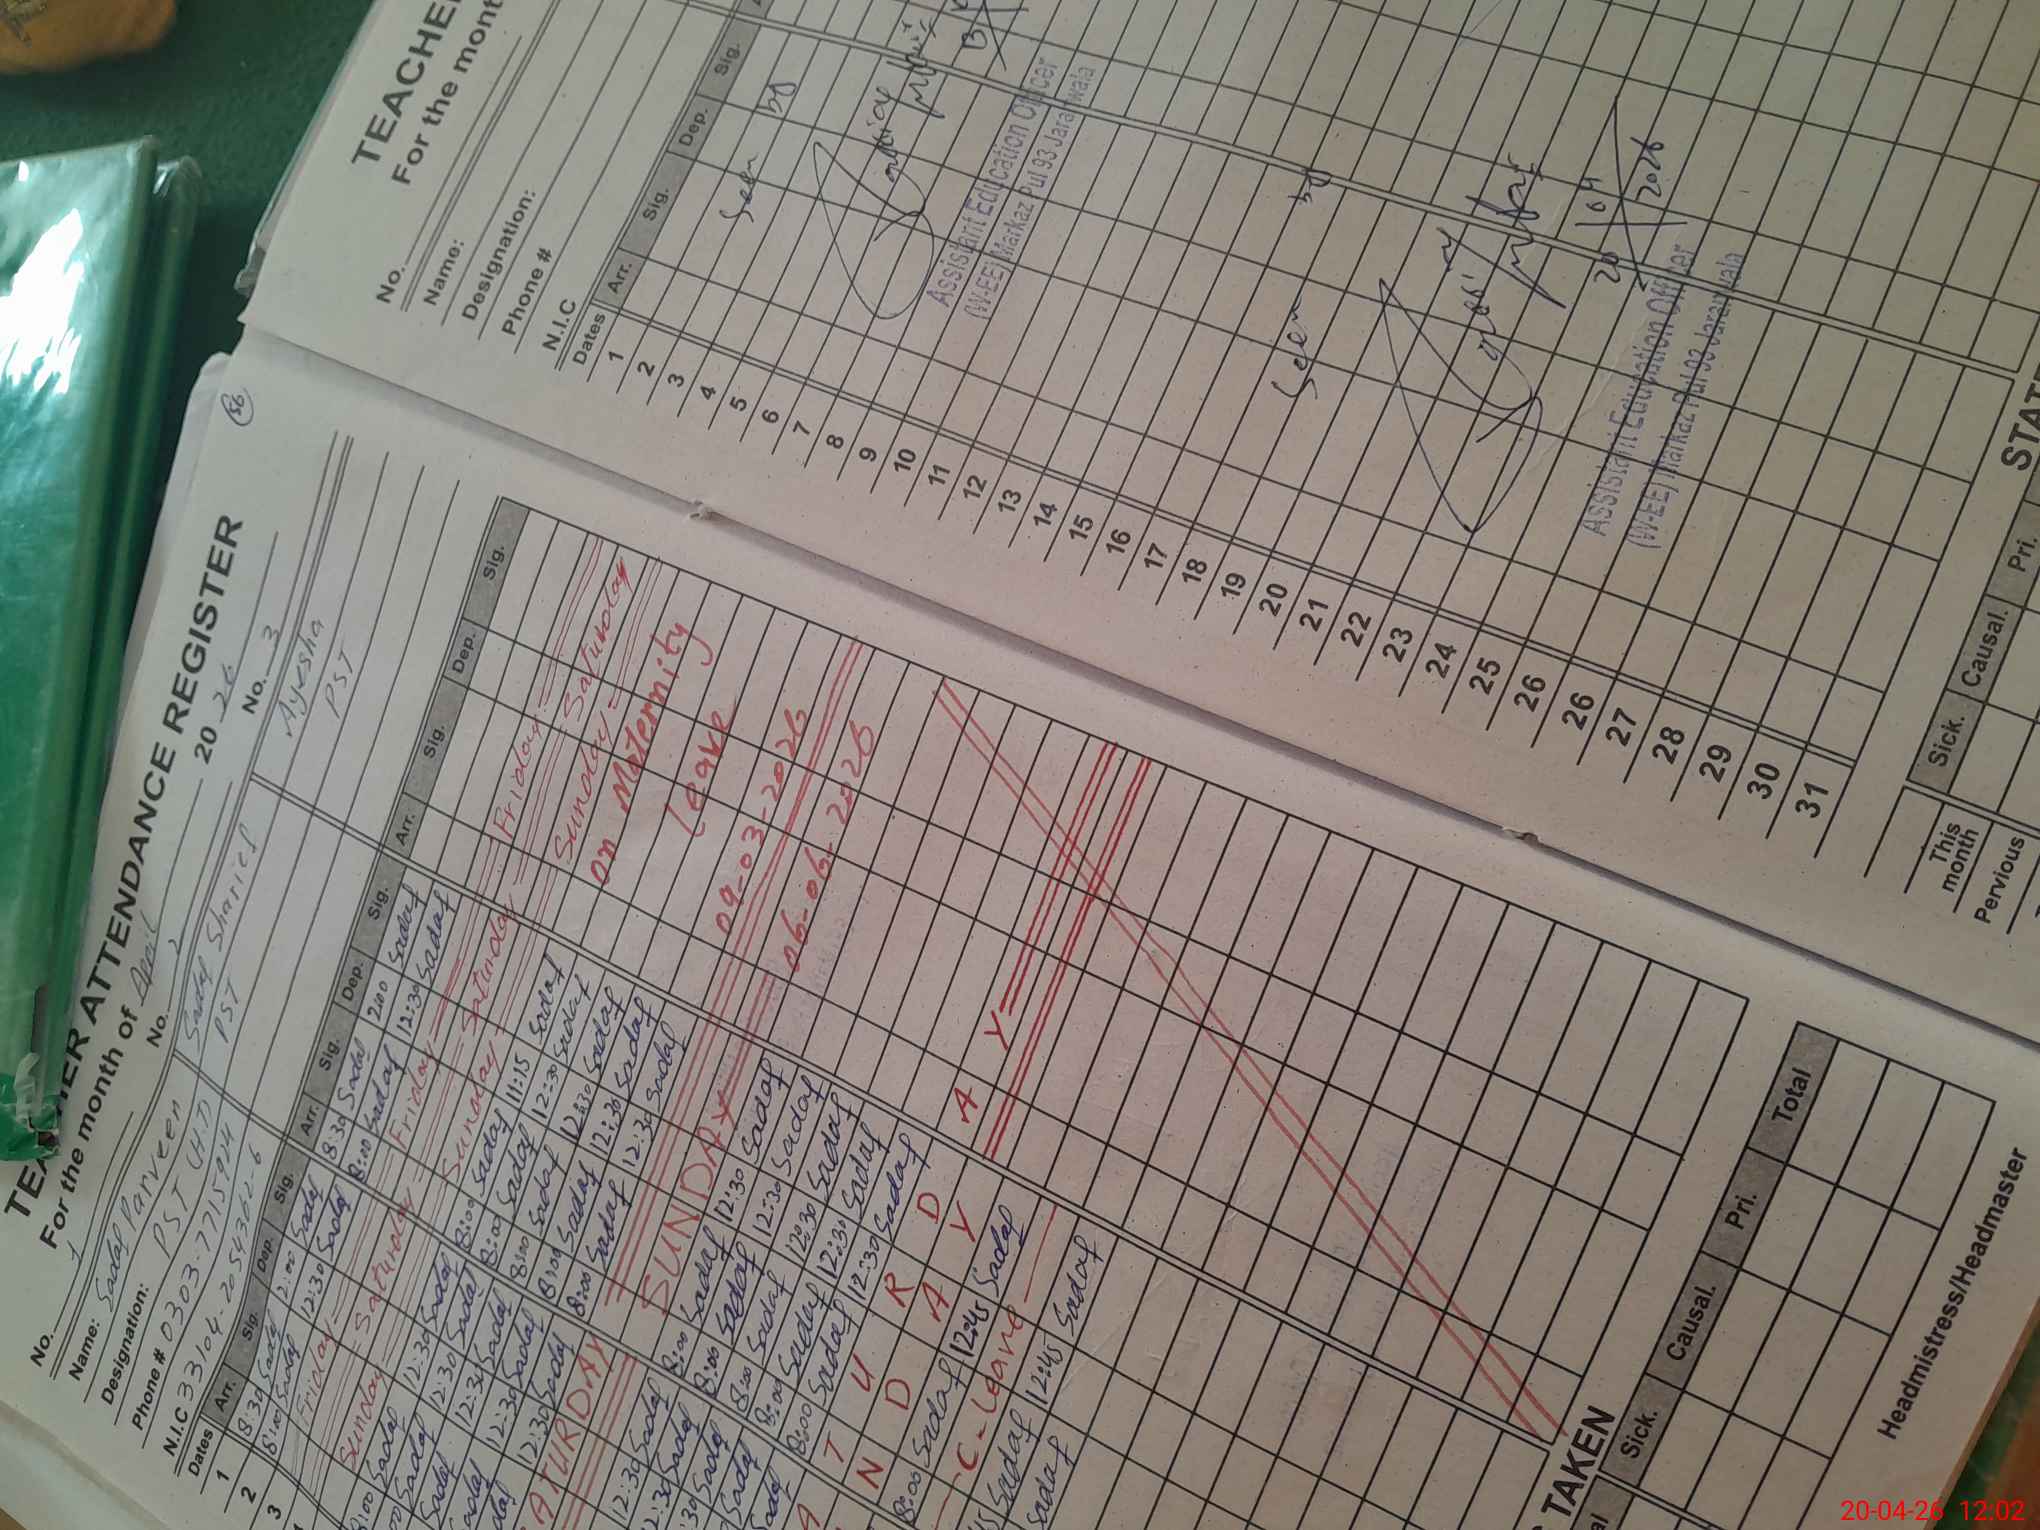 TEACHER ATTENDANCE REGISTER
For the month of April 2026
No. 1
No. 2
No. 3
Name: Sadaf Parveen
Sadaf Sharief
Ayesha
Designation: PST (H.T)
PST
PST
Phone # 0303-7715924
N.I.C 33104-2054302-6
Dates Arr. Sig. Dep. Sig. Arr. Sig. Dep. Sig. Arr. Sig. Dep. Sig.
1 8:30 Sadaf 2:00 Sadaf 8:30 Sadaf 2:00 Sadaf
2 8:00 Sadaf 12:30 Sadaf 8:00 Sadaf 12:30 Sadaf
3 Friday Friday Friday
Saturday Saturday Saturday
Sunday Sunday Sunday
8:00 Sadaf 12:30 Sadaf 8:00 Sadaf 11:15 Sadaf
Sadaf 12:30 Sadaf 8:00 Sadaf 12:30 Sadaf
Sadaf 12:30 Sadaf 8:00 Sadaf 12:30 Sadaf
Sadaf 12:30 Sadaf 8:00 Sadaf 12:30 Sadaf
Sadaf 12:30 Sadaf 8:00 Sadaf 12:30 Sadaf
on Maternity
leave
09-03-2026
06-06-2026
ATURDAY
SUNDAY
12:30 Sadaf 8:00 Sadaf 12:30 Sadaf
Sadaf 8:00 Sadaf 12:30 Sadaf
Sadaf 8:00 Sadaf 12:30 Sadaf
Sadaf 8:00 Sadaf 12:30 Sadaf
Sadaf 8:00 Sadaf 12:30 Sadaf
A T U R D A Y
N D A Y
8:00 Sadaf 12:45 Sadaf
C-Leave
Sadaf 12:45 Sadaf
Sadaf
TAKEN
Sick. Causal. Pri. Total
Headmistress/Headmaster
TEACHER
For the month
No.
Name:
Designation:
Phone #
N.I.C
Dates Arr. Sig. Dep. Sig.
1
2
3
4
5
6
7
8
9
10
11
12
13
14
15
16
17
18
19
20
21
22
23
24
25
26
26
27
28
29
30
31
Seen by
Assistant Education Officer
(W-EE) Markaz Pul 93 Jaranwala
Seen by
20/04/2026
Assistant Education Officer
(W-EE) Markaz Pul 93 Jaranwala
STATE
Sick. Causal. Pri.
This month
Pervious
20-04-26 12:02